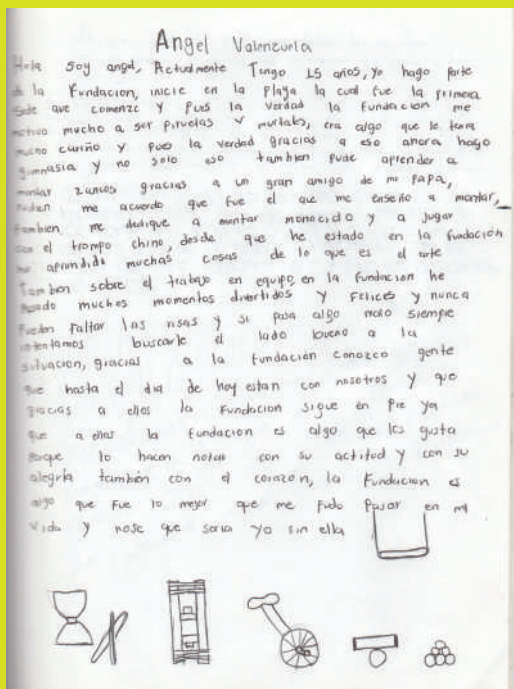 Angel Valenzuela
Hola Soy angel, Actualmente Tengo 15 años, yo hago parte
de la Fundacion, inicie en la Playa la cual fue la primera
sede que comenze y pues la verdad la fundacion me
motivo mucho a ser piruetas y mortales, era algo que le tenia
mucho cariño y pues la verdad gracias a eso ahora hago
gimnasia y no solo eso tambien pude aprender a
montar zancos gracias a un gran amigo de mi PAPA,
me acuerdo que fue el que me enseño a montar,
tambien me dedique a montar monociclo y a jugar
con el trompo chino, desde que he estado en la fundación
he aprendido muchas cosas de lo que es el arte
Tambien sobre el trabajo en equipo, en la fundacion he
pasado muchos momentos divertidos y Felices y nunca
pueden faltar las risas y si pasa algo malo siempre
intentamos buscarle el lado bueno a la
situacion, gracias a la fundación conozco gente
que hasta el dia de hoy estan con nosotros y que
gracias a ellos la Fundacion sigue en Pie ya
que a ellos la fundacion es algo que les gusta
porque lo hacen notar con su actitud y con su
alegría también con el corazón, la Fundacion es
algo que fue lo mejor que me Pudo Pasar en mi
vida y nose que seria yo sin ella